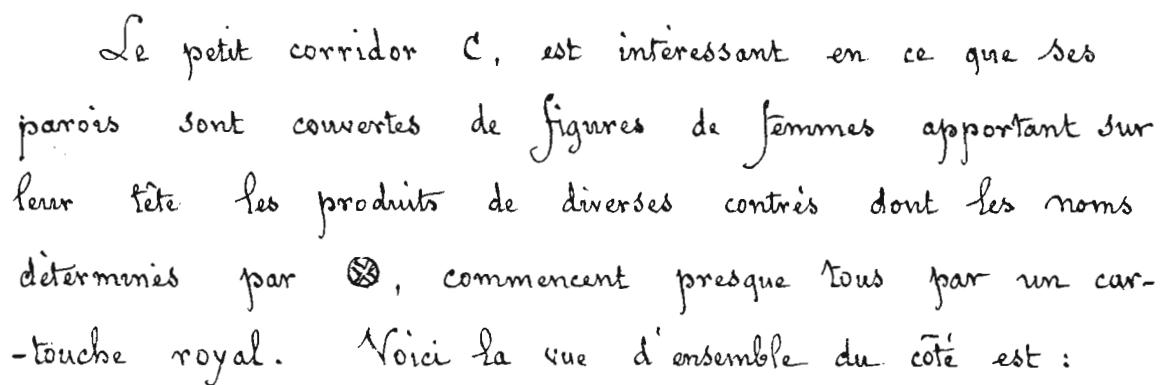 Le petit corridor C, est intèressant en ce que ses
parois sont couvertes de figures de femmes apportant sur
leur tête les produits de diverses contrès dont les noms
dèterminès par 𓊖, commencent presque tous par un car-
-touche royal. Voici la vue d'ensemble du côté est :